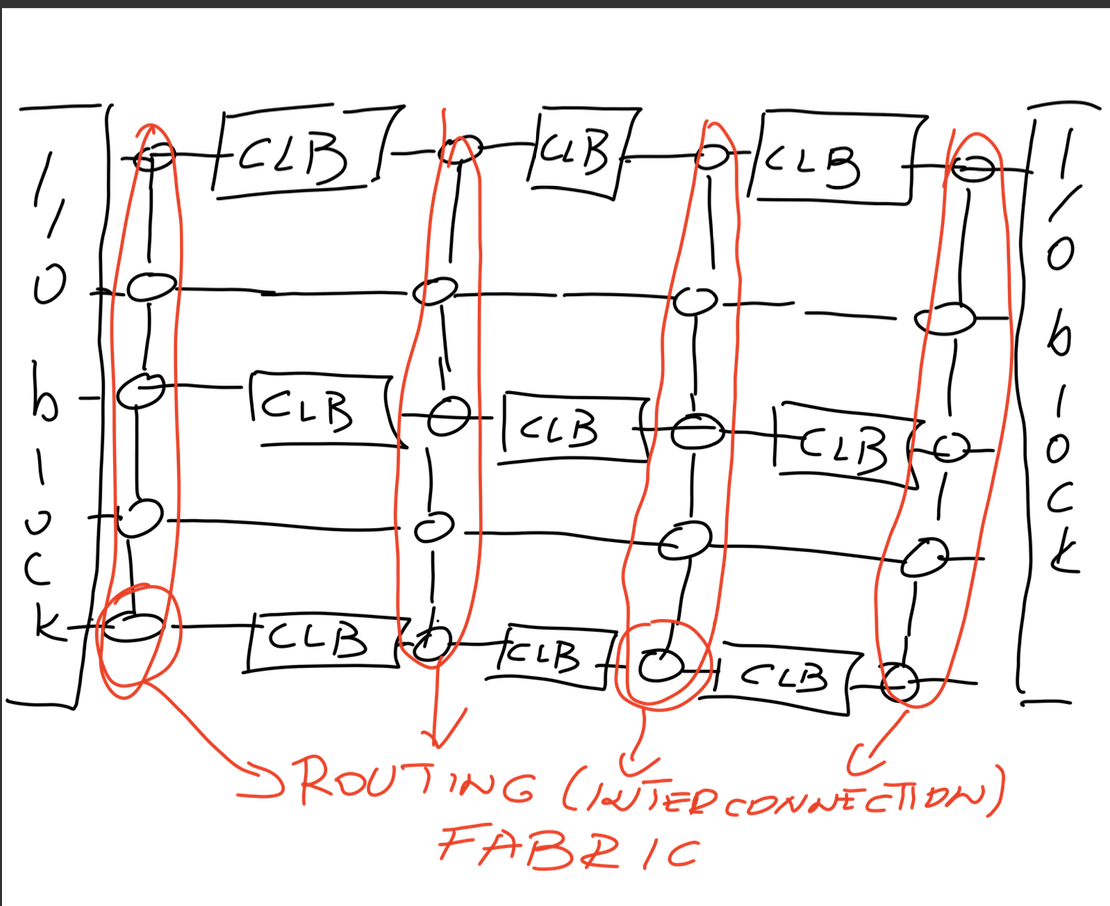 I/O block
CLB CLB CLB
I/O block
CLB CLB CLB
CLB CLB CLB
ROUTING (INTERCONNECTION)
FABRIC